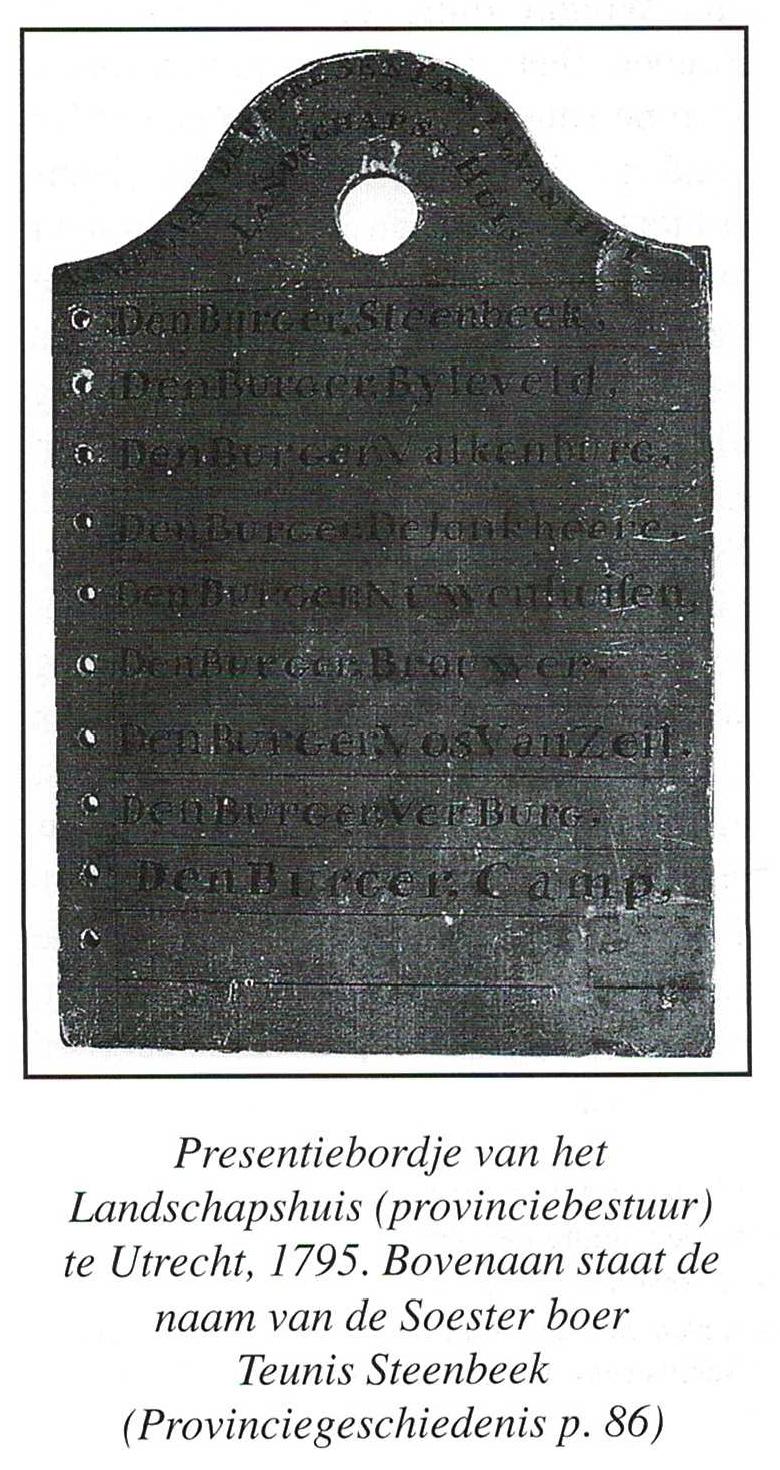 NAMEN VAN DE REPRESENTANTEN VAN HET
LANDSCHAPS HUIS
Den Burger Steenbeek,
Den Burger Byleveld,
Den Burger Valkenburg,
Den Burger De Jonkheere,
Den Burger Nieuwenhuisen,
Den Burger Brouwer,
Den Burger Vos Van Zeil,
Den Burger Ver Burg,
Den Burger Camp,
Presentiebordje van het
Landschapshuis (provinciebestuur)
te Utrecht, 1795. Bovenaan staat de
naam van de Soester boer
Teunis Steenbeek
(Provinciegeschiedenis p. 86)